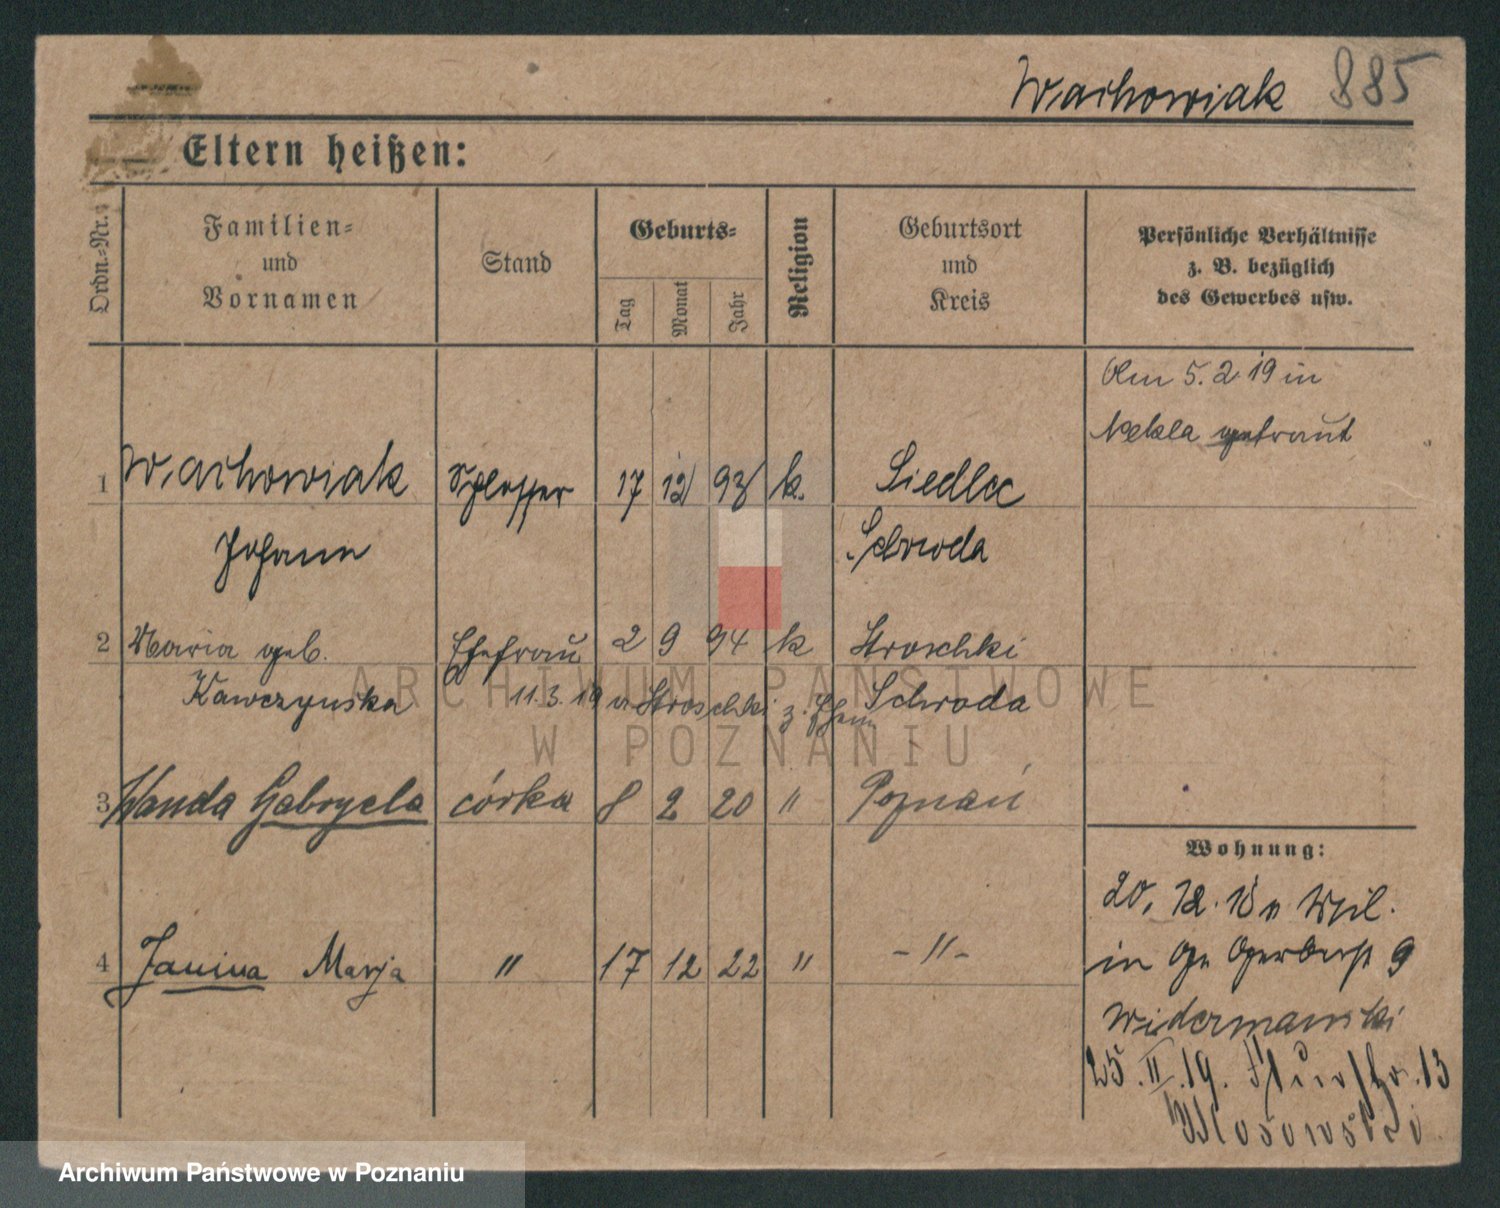 Wachowiak 885
Eltern heißen:
Ordn.-Nr.
Familien-
und
Vornamen
Stand
Geburts-
Tag
Monat
Jahr
Religion
Geburtsort
und
Kreis
Persönliche Verhältnisse
z. B. bezüglich
des Gewerbes usw.
Am 5. 2. 19 in
Nekla getraut
1 Wachowiak Schlosser 17 12 93 k. Siedlec
Johann Schroda
2 Maria geb. Ehefrau 2 9 94 k Stroschki
Kawczynska 11. 3. 19 v Stroschki z. Ehem Schroda
3 Wanda Gabryela córka 8 2 20 " Poznań
Wohnung:
20. 12. 18 v
in Gerberst 9
4 Janina Marja " 17 12 22 " - " -
Widermanski
25. II. 19. 13
ARCHIWUM PAŃSTWOWE
W POZNANIU
Archiwum Państwowe w Poznaniu